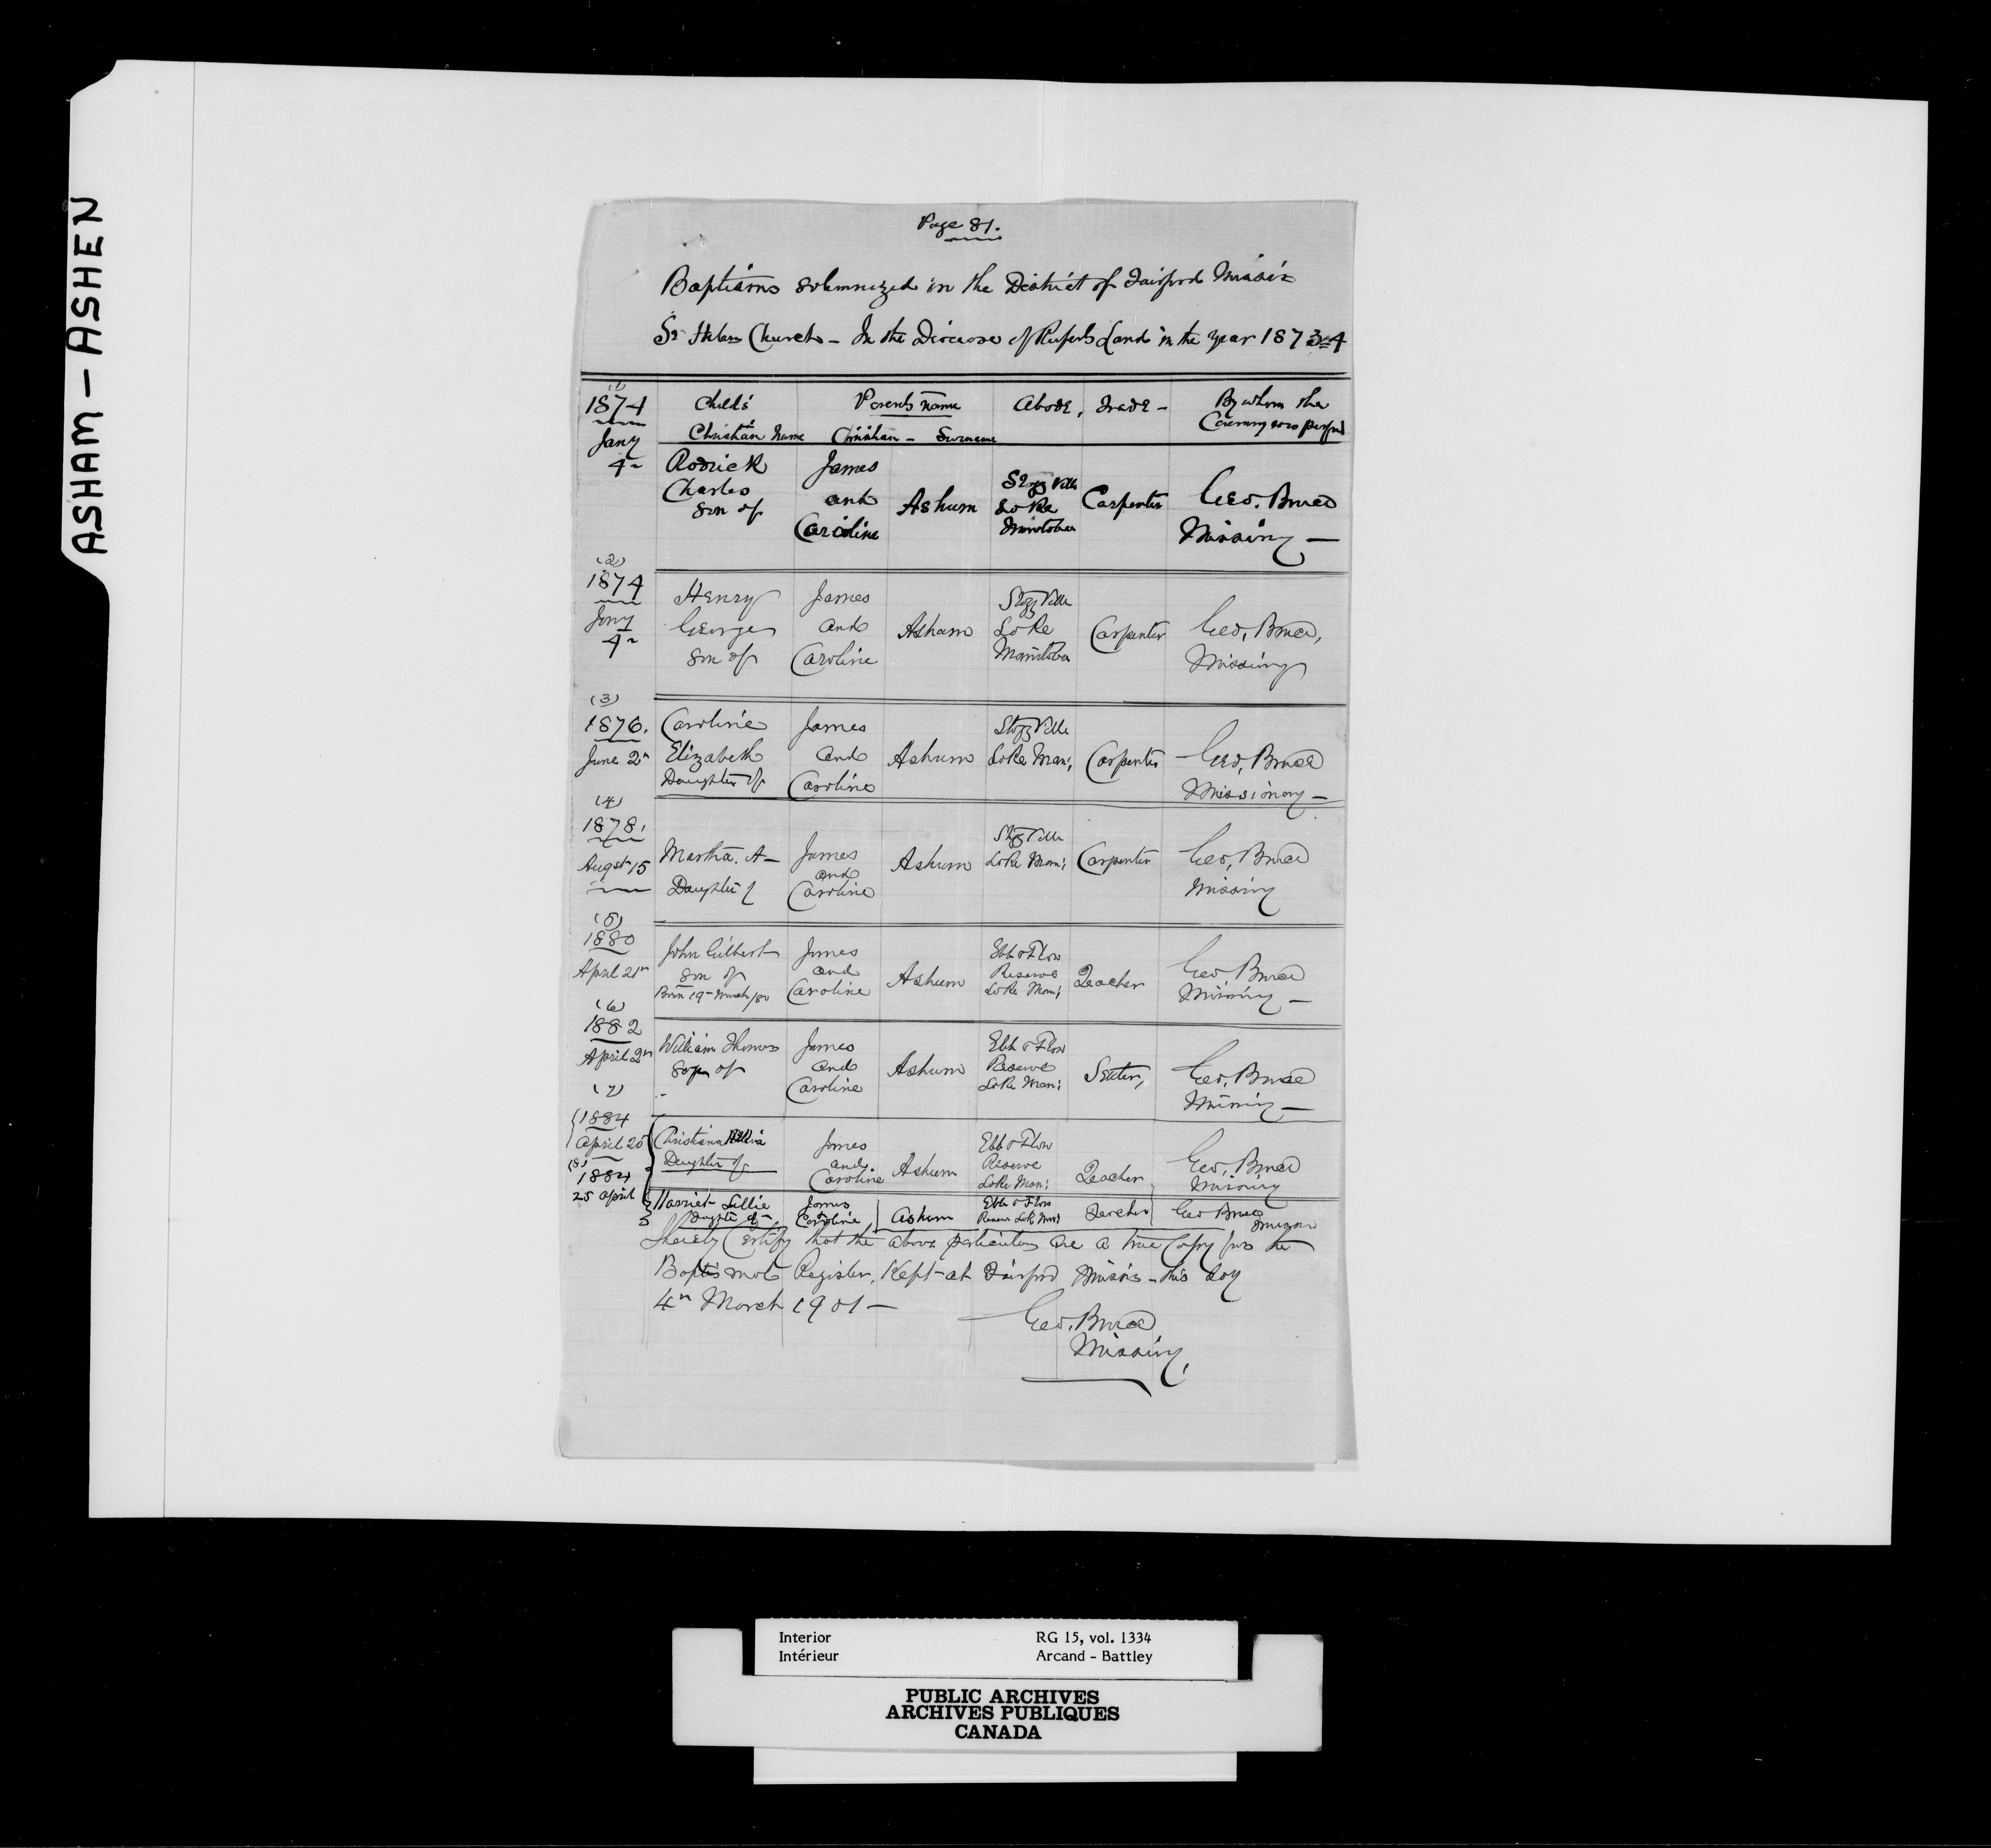 ASHAM - ASHEN
Page 81.
Baptisms solemnized in the District of Fairford Missin
St Helens Church - In the Diocese of Ruperts Land in the year 1873-4
(1)
1874 Child's Parents name Abode, Trade - By whom the
Christian Name Christian - Surname Ceremony was perfmd
Jany
4th Rodrick James
Charles and Ashum Lake Carpenter Geo. Bruce
son of Caroline Manitoba Missiny -
(2)
1874 Henry James
Jany George and Asham Lake Carpenter Geo, Bruce,
4th son of Caroline Manitoba Missiny
(3)
1876. Caroline James
June 2n Elizabeth and Ashum Lake Man; Carpenter Geo, Bruce
Daughter of Caroline Missionary -
(4)
1878,
Augst 15 Martha. A- James Ashum Lake Man; Carpenter Geo, Bruce
and
Daughter of Caroline Missiny
(5)
1880 John Gilbert James Ebb & Flow Geo Bruce
April 21n son of and Ashum Reserve Teacher
Born 19th March /80 Caroline Lake Man; Missiny -
(6)
1882 William Thomas James Ebb & Flow
April 2n son of and Ashum Reserve Geo, Bruce
Caroline Lake Man; Missiny -
(7)
1884 James Ebb & Flow
April 25 Christiana and Ashum Reserve Teacher Geo, Bruce
Daughter of Caroline Lake Man; Missiny
(8)
1884
25 April Harriet Lillie James Ashum Ebb & Flow Teacher Geo Bruce
Daughter of - Caroline Reserve Lake Man;
I hereby Certify that the above particulars are a true Copy from the
Baptismal Register, Kept at Fairford Missin - this day
4th March 1901 -
Geo. Bruce
Missiny,
Interior RG 15, vol. 1334
Intérieur Arcand - Battley
PUBLIC ARCHIVES
ARCHIVES PUBLIQUES
CANADA